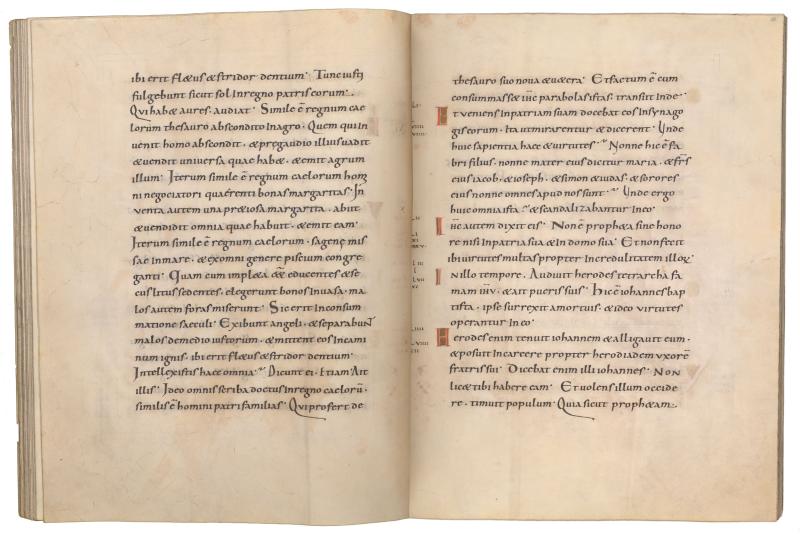 ibi erit fletus & stridor dentium· Tunc iusti
fulgebunt sicut sol inregno patris eorum·.
Qui hab& aures, audiat· Simile ē regnum cae
lorum thesauro abscondito inagro· Quem qui in
uenit homo abscondit, & pregaudio illius uadit
& uendit uniuersa quae hab&, & emit agrum
illum· Iterum simile ē regnum caelorum homi
ni negociatori quaerenti bonas margaritas· In
uenta autem una pr&iosa margarita, abiit
& uendidit omnia quae habuit, & emit eam·
Iterum simile ē regnum caelorum, sagenę mis
sae inmare, & exomni genere piscium congre
ganti· Quam cum impl&a ēē& educentes & se
cus litus sedentes, elegerunt bonos inuasa, ma
los autem foras miserunt· Sic erit inconsum
matione saeculi· Exibunt angeli, & separabunt
malos demedio iustorum, & mittent eos incami
num ignis, ibi erit fl&us & stridor dentium·
Intellexistis haec omnia· Dicunt ei· Etiam· Ait
illis· Ideo omnis scriba doctus inregno caeloru̅·
similis ē homini patri familias· Qui profert de
thesauro suo noua & u&era· Et factum ē cum
consummass& ihc parabolas istas, transiit inde·
Et ueniens inpatriam suam docebat eos insynago
gis eorum, Ita ut mirarentur & dicerent· Unde
huic sapientia haec & uirtutes· Nonne hic ē fa
bri filius, nonne mater eius dicitur maria, & frs
eius iacob, & ioseph, & simon & iudas, & sorores
eius nonne omnes apud nos sunt· Unde ergo
huic omnia ista & scandalizabantur in eo·
Ihc autem dixit eis· Non ē proph&a sine hono
re nisi inpatria sua & in domo sua· Et non fecit
ibi uirtutes multas propter incredulitatem illoꝝ·
In illo tempore, Audiuit herodes tetrarcha fa
mam ihu, & ait pueris suis· Hic ē iohannes bap
tista, ipse surrexit amortuis, & ideo uirtutes
operantur in eo·
Herodes enim tenuit iohannem & alligauit eum,
& posuit incarcere propter herodiadem uxorē
fratris sui· Dicebat enim illi iohannes· Non
lic& tibi habere eam· Et uolens illum occide
re, timuit populum· Quia sicut proph&am·.